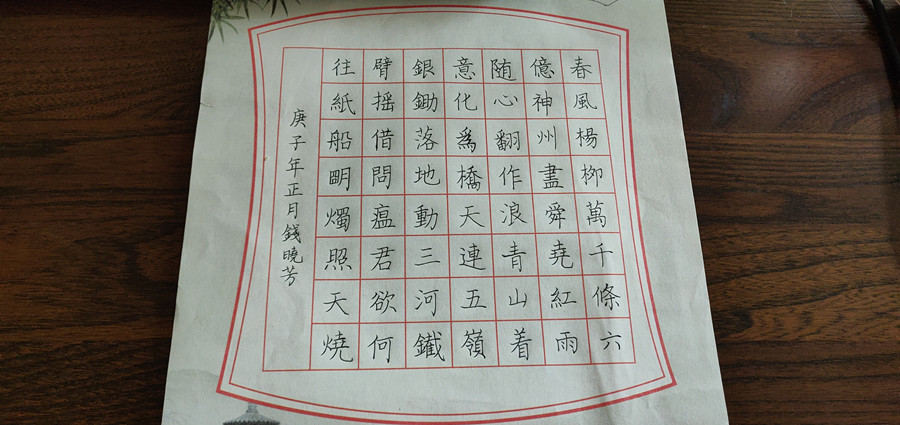 春風楊柳萬千條六
億神州盡舜堯紅雨
随心翻作浪青山着
意化爲橋天連五嶺
銀鋤落地動三河鐵
臂摇借問瘟君欲何
往紙船眀燭照天燒
庚子年正月錢曉芳